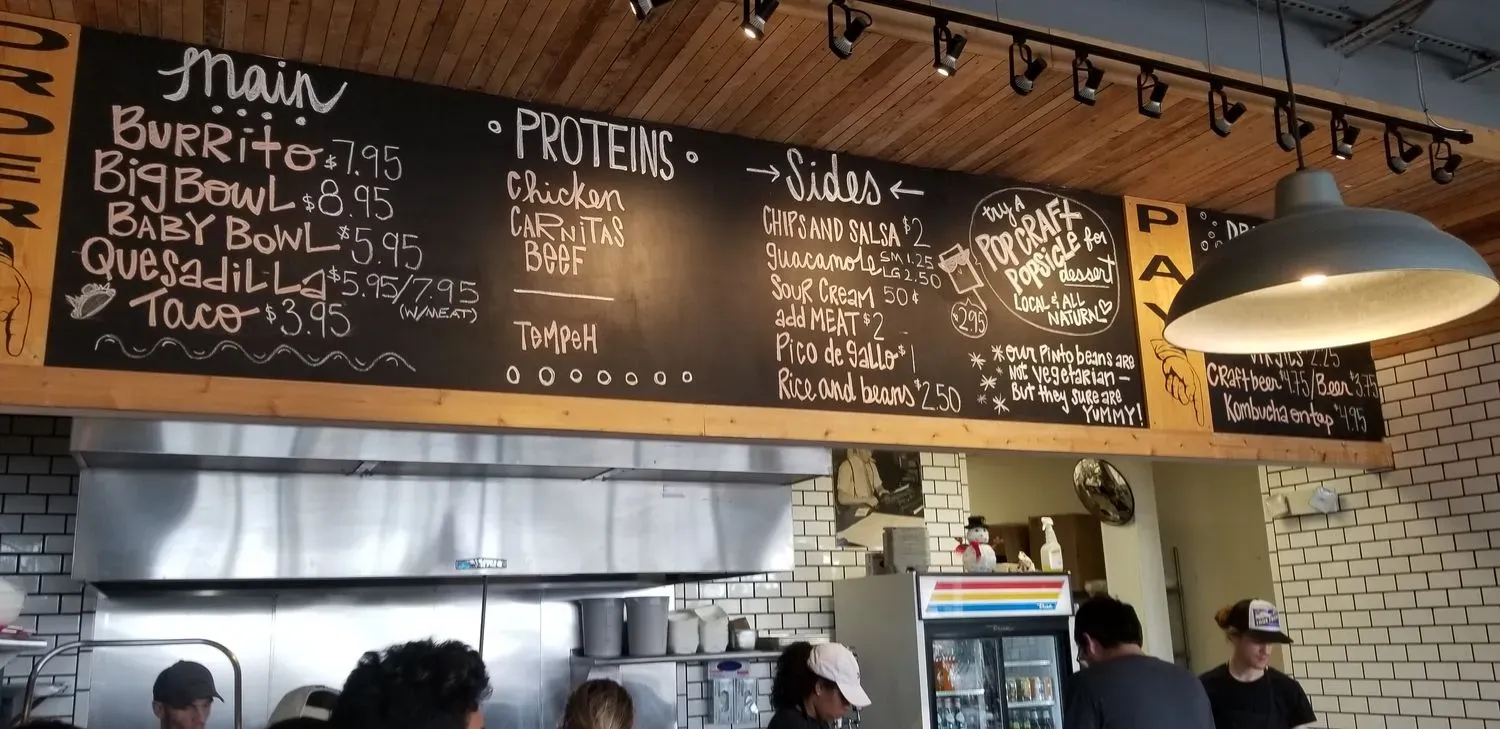 ORDER
Main
BURRito $7.95
BigBowL $8.95
BABY BOWL $5.95
QuesadiLLa $5.95/7.95
(W/MEAT)
Taco $3.95
PROTEINS
Chicken
CARNiTAS
BEEF
TEMPEH
→Sides←
CHIPS AND SALSA $2
guacamole SM 1.25
LG 2.50
SOUR CREAM 50¢
add MEAT $2
Pico de gallo $1
Rice and beans $2.50
try A
POP CRAFT
POPSICLE for
dessert
LOCAL & ALL
NATURAL
$2.95
*OUR PINTO beans are
NOT VEGETARIAN —
BUT they SURE ARE
YUMMY!
PAY
DR
VIRGILS 2.25
CRaftbeer $4.75/Beer $3.75
Kombucha on tap $4.95